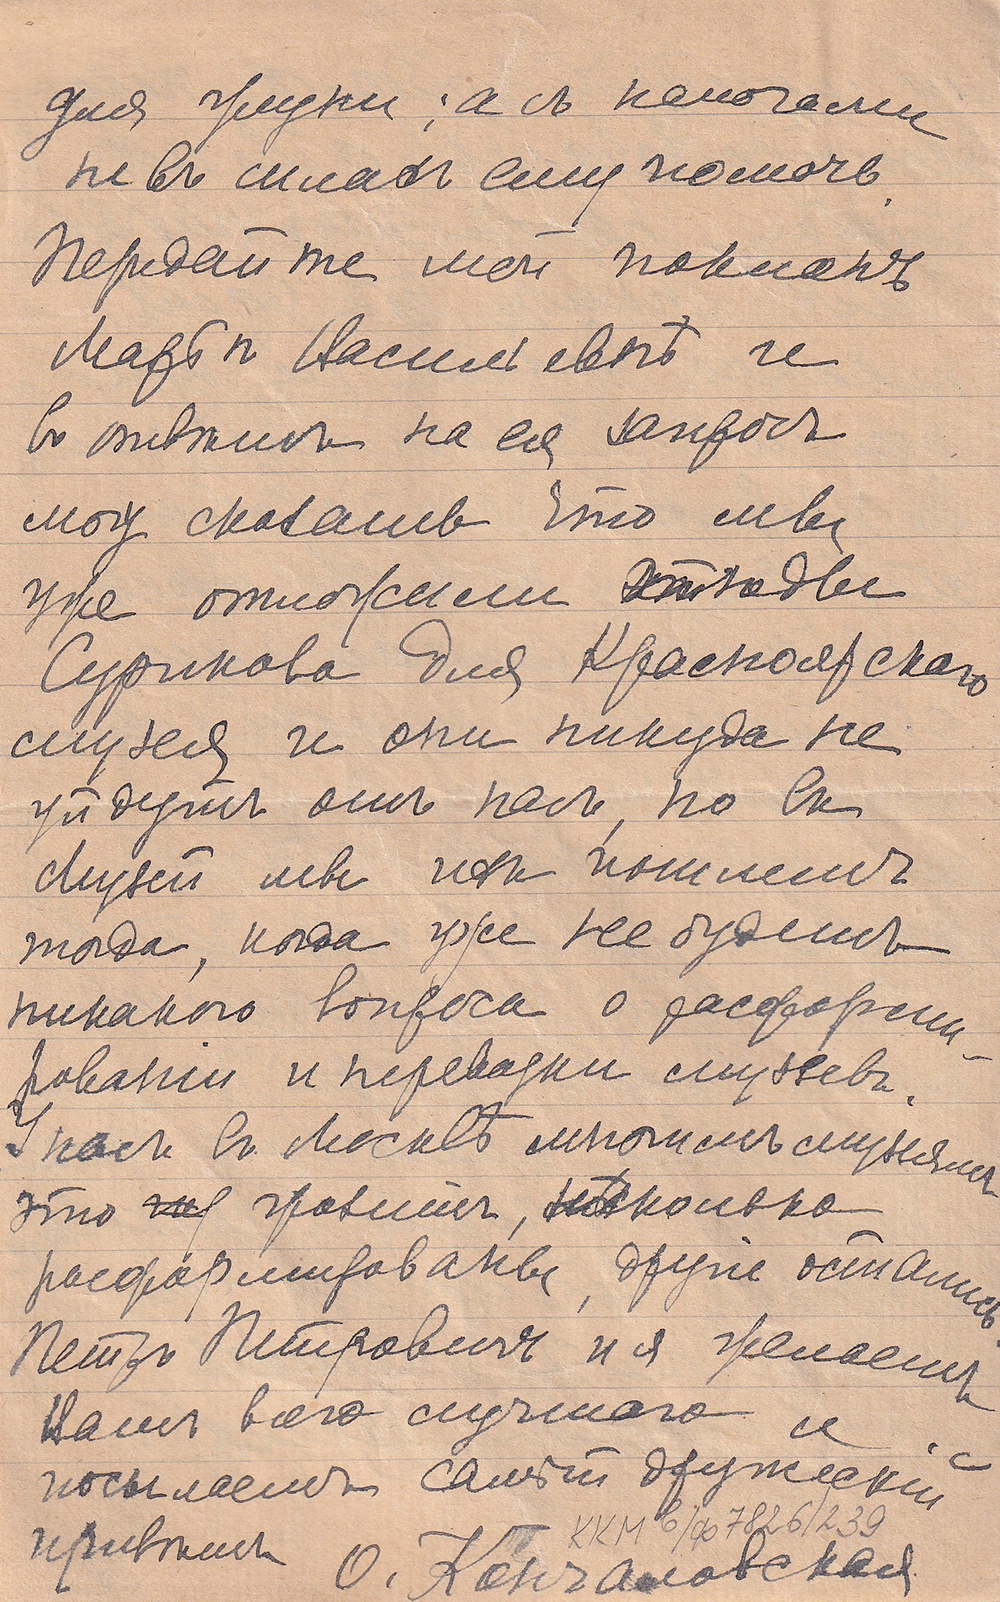 для науки, а съ
не въ силахъ ему помочь.
Передайте мой поклонъ
Марѣи Васильевнѣ и
въ отвѣтъ на ея запросъ
могу сказать что мы
уже отложили этюды
Сурикова для Красноярскаго
музея и они никуда не
уйдутъ отъ насъ, но въ
Музей мы ихъ пошлемъ
тогда, когда уже не будетъ
никакого вопроса о расформи-
рованіи и переводки музеевъ.
У насъ въ Москвѣ многимъ музеямъ
это грозитъ, нѣсколько
расформированы, другіе остались
Петръ Петровичъ и я желаемъ
Вамъ всего лучшаго и
посылаемъ самый дружескій
привѣтъ
О. Кончаловская
ККМ в/ф 7826/239